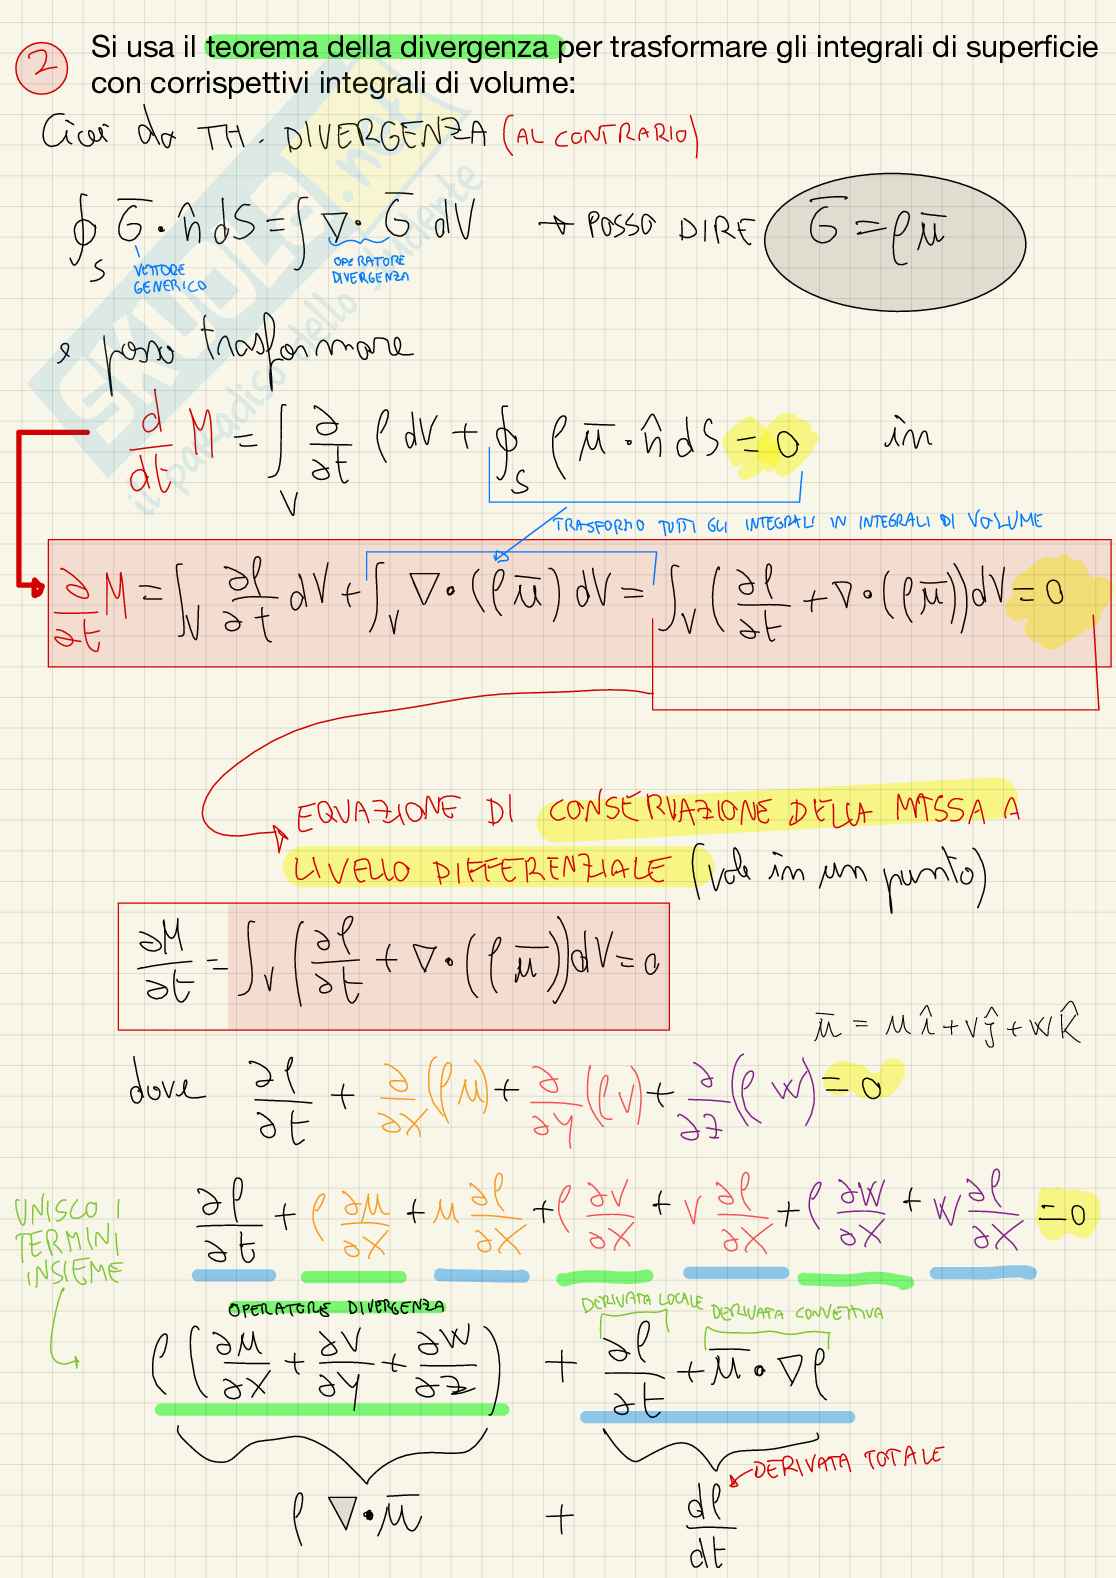 2 Si usa il teorema della divergenza per trasformare gli integrali di superficie
con corrispettivi integrali di volume:
TH. DIVERGENZA (AL CONTRARIO)
∮_S G̅ · n̂ dS = ∫ ∇ · G̅ dV → POSSO DIRE G̅ = ρu̅
VETTORE GENERICO
OPERATORE DIVERGENZA
e posso trasformare
d/dt M = ∫_V ∂/∂t ρ dV + ∮_S ρ u̅ · n̂ dS = 0 in
TRASFORMO TUTTI GLI INTEGRALI IN INTEGRALI DI VOLUME
∂/∂t M = ∫_V ∂ρ/∂t dV + ∫_V ∇ · (ρu̅) dV = ∫_V (∂ρ/∂t + ∇ · (ρu̅)) dV = 0
EQUAZIONE DI CONSERVAZIONE DELLA MASSA A
LIVELLO DIFFERENZIALE (vale in un punto)
∂M/∂t = ∫_V (∂ρ/∂t + ∇ · (ρu̅)) dV = 0
u̅ = u î + v ĵ + w k̂
dove ∂ρ/∂t + ∂/∂x (ρu) + ∂/∂y (ρv) + ∂/∂z (ρw) = 0
UNISCO I
TERMINI
INSIEME
∂ρ/∂t + ρ ∂u/∂x + u ∂ρ/∂x + ρ ∂v/∂x + v ∂ρ/∂x + ρ ∂w/∂x + w ∂ρ/∂x = 0
OPERATORE DIVERGENZA
DERIVATA LOCALE
DERIVATA CONVETTIVA
ρ (∂u/∂x + ∂v/∂y + ∂w/∂z) + ∂ρ/∂t + u̅ · ∇ρ
DERIVATA TOTALE
ρ ∇ · u̅ + dρ/dt